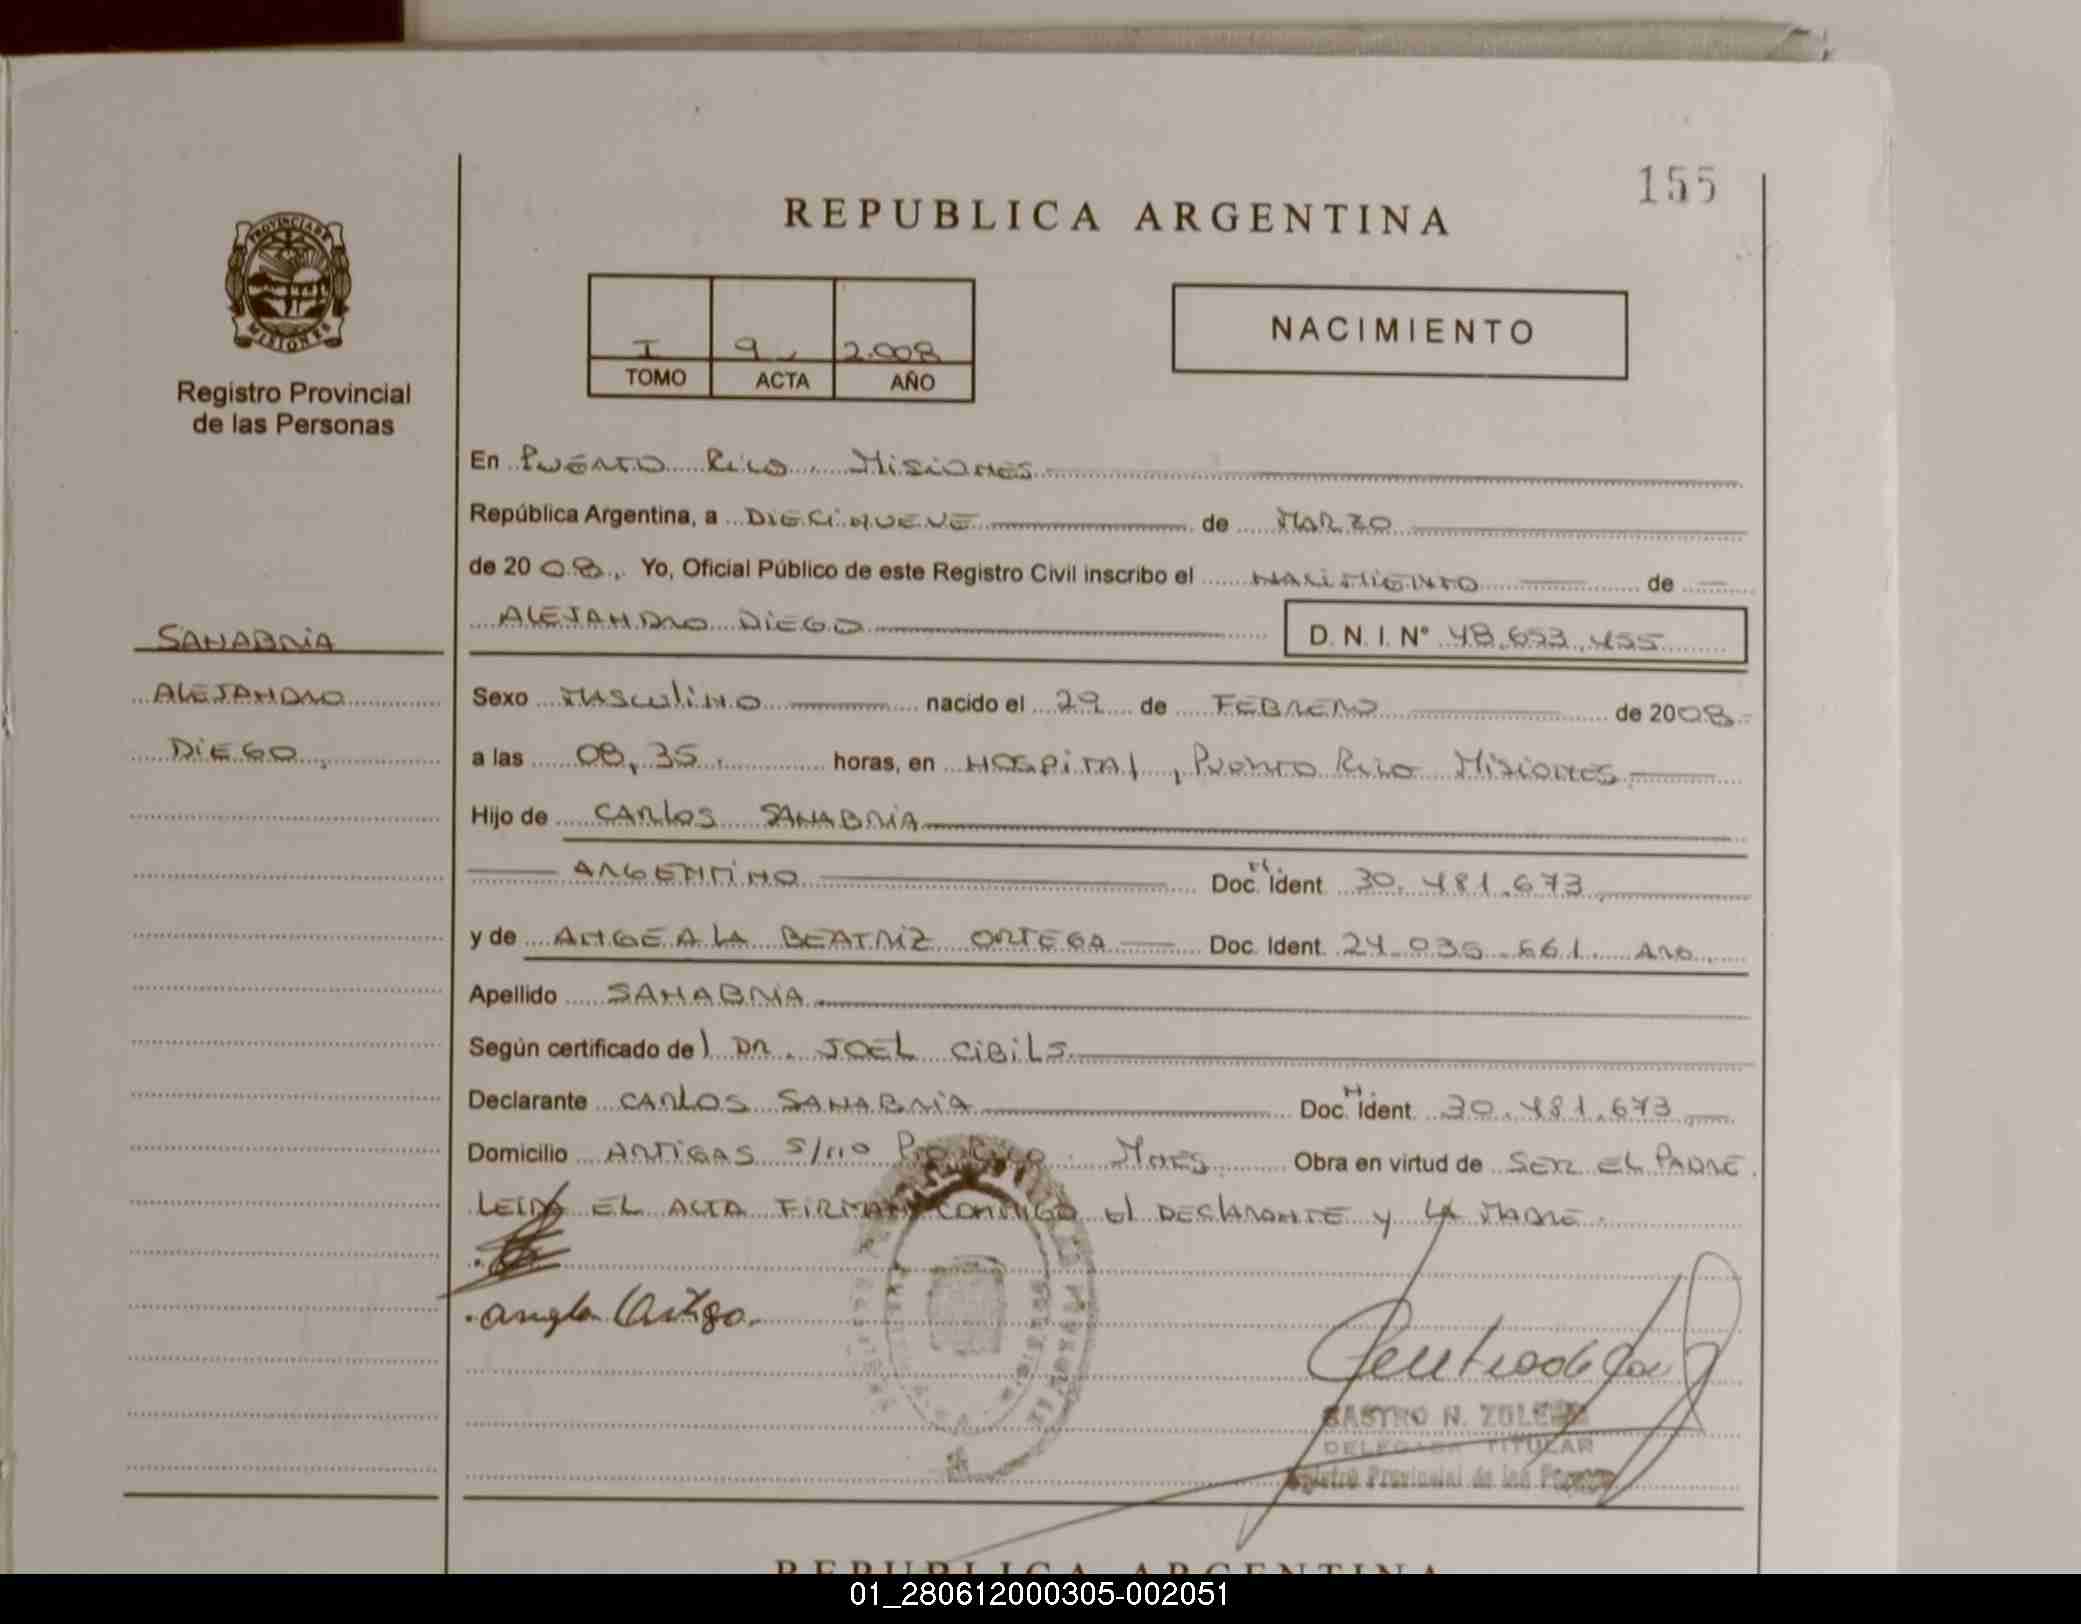 155
REPUBLICA ARGENTINA
PROVINCIA DE
MISIONES
I 9 2.008
TOMO ACTA AÑO
NACIMIENTO
Registro Provincial
de las Personas
En PUERTO RICO, MISIONES
República Argentina, a DIECINUEVE de MARZO
de 2008. Yo, Oficial Público de este Registro Civil inscribo el NACIMIENTO de
ALEJANDRO DIEGO D. N. I. N° 48.653.455
SANABRIA
ALEJANDRO
DIEGO.
Sexo MASCULINO nacido el 29 de FEBRERO de 2008
a las 08,35. horas, en HOSPITAL, PUERTO RICO MISIONES
Hijo de CARLOS SANABRIA
ARGENTINO Doc. Ident 30.481.673
y de ANGEALA BEATRIZ ORTEGA Doc. Ident. 24.035.661 ARG.
Apellido SANABRIA
Según certificado del DR. JOEL CIBILS
Declarante CARLOS SANABRIA Doc. Ident 30.481.673
Domicilio ARTIGAS S/Nº Pto Rico. Mnes. Obra en virtud de SER EL PADRE.
LEIDA EL ACTA FIRMAN CONMIGO el DECLARANTE y LA MADRE.
CASTRO N. ZULEMA
DELEGADA TITULAR
Registro Provincial de las Personas
REPUBLICA ARGENTINA
01_280612000305-002051